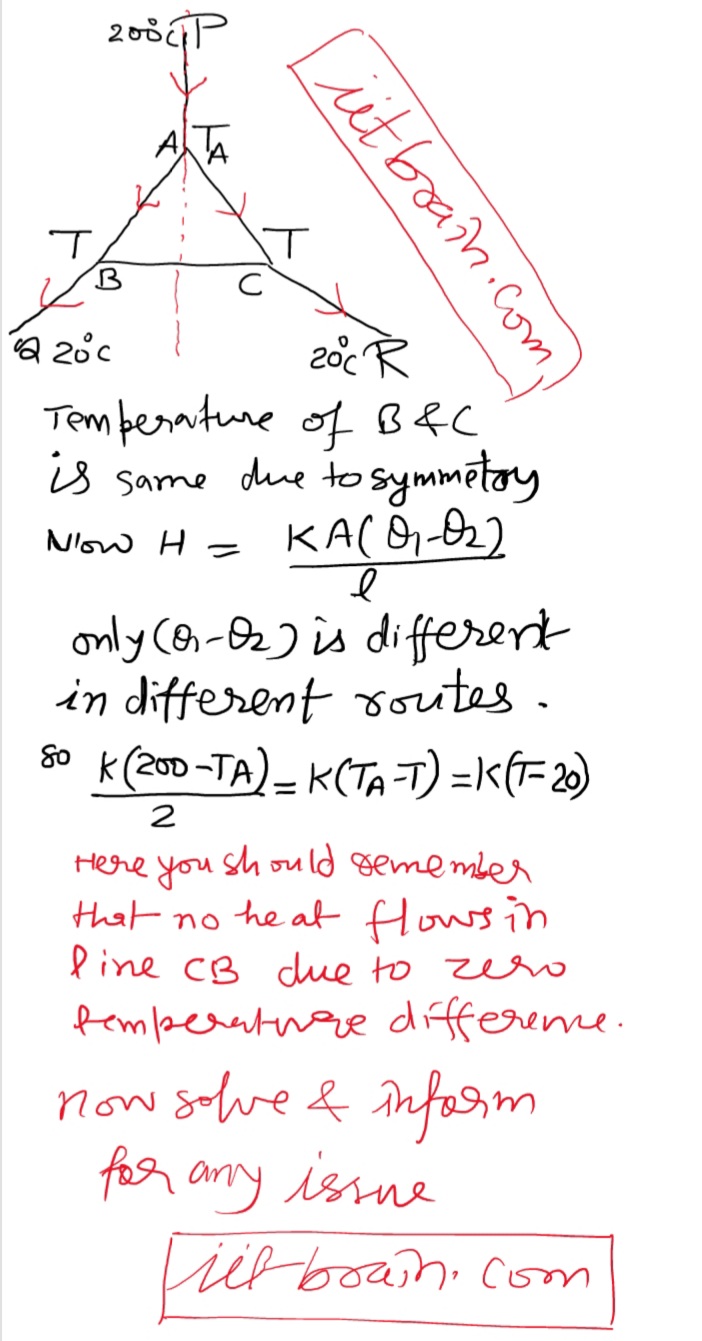 200°C P
A TA
T T
B C
Q 20°C 20°C R
iitbrain.com
Temperature of B & C
is same due to symmetry
Now H = KA(θ1-θ2)
l
only (θ1-θ2) is different
in different routes.
so K(200-TA) = K(TA-T) = K(T-20)
2
Here you should remember
that no heat flows in
line CB due to zero
temperature difference.
now solve & inform
for any issue
iitbrain.com